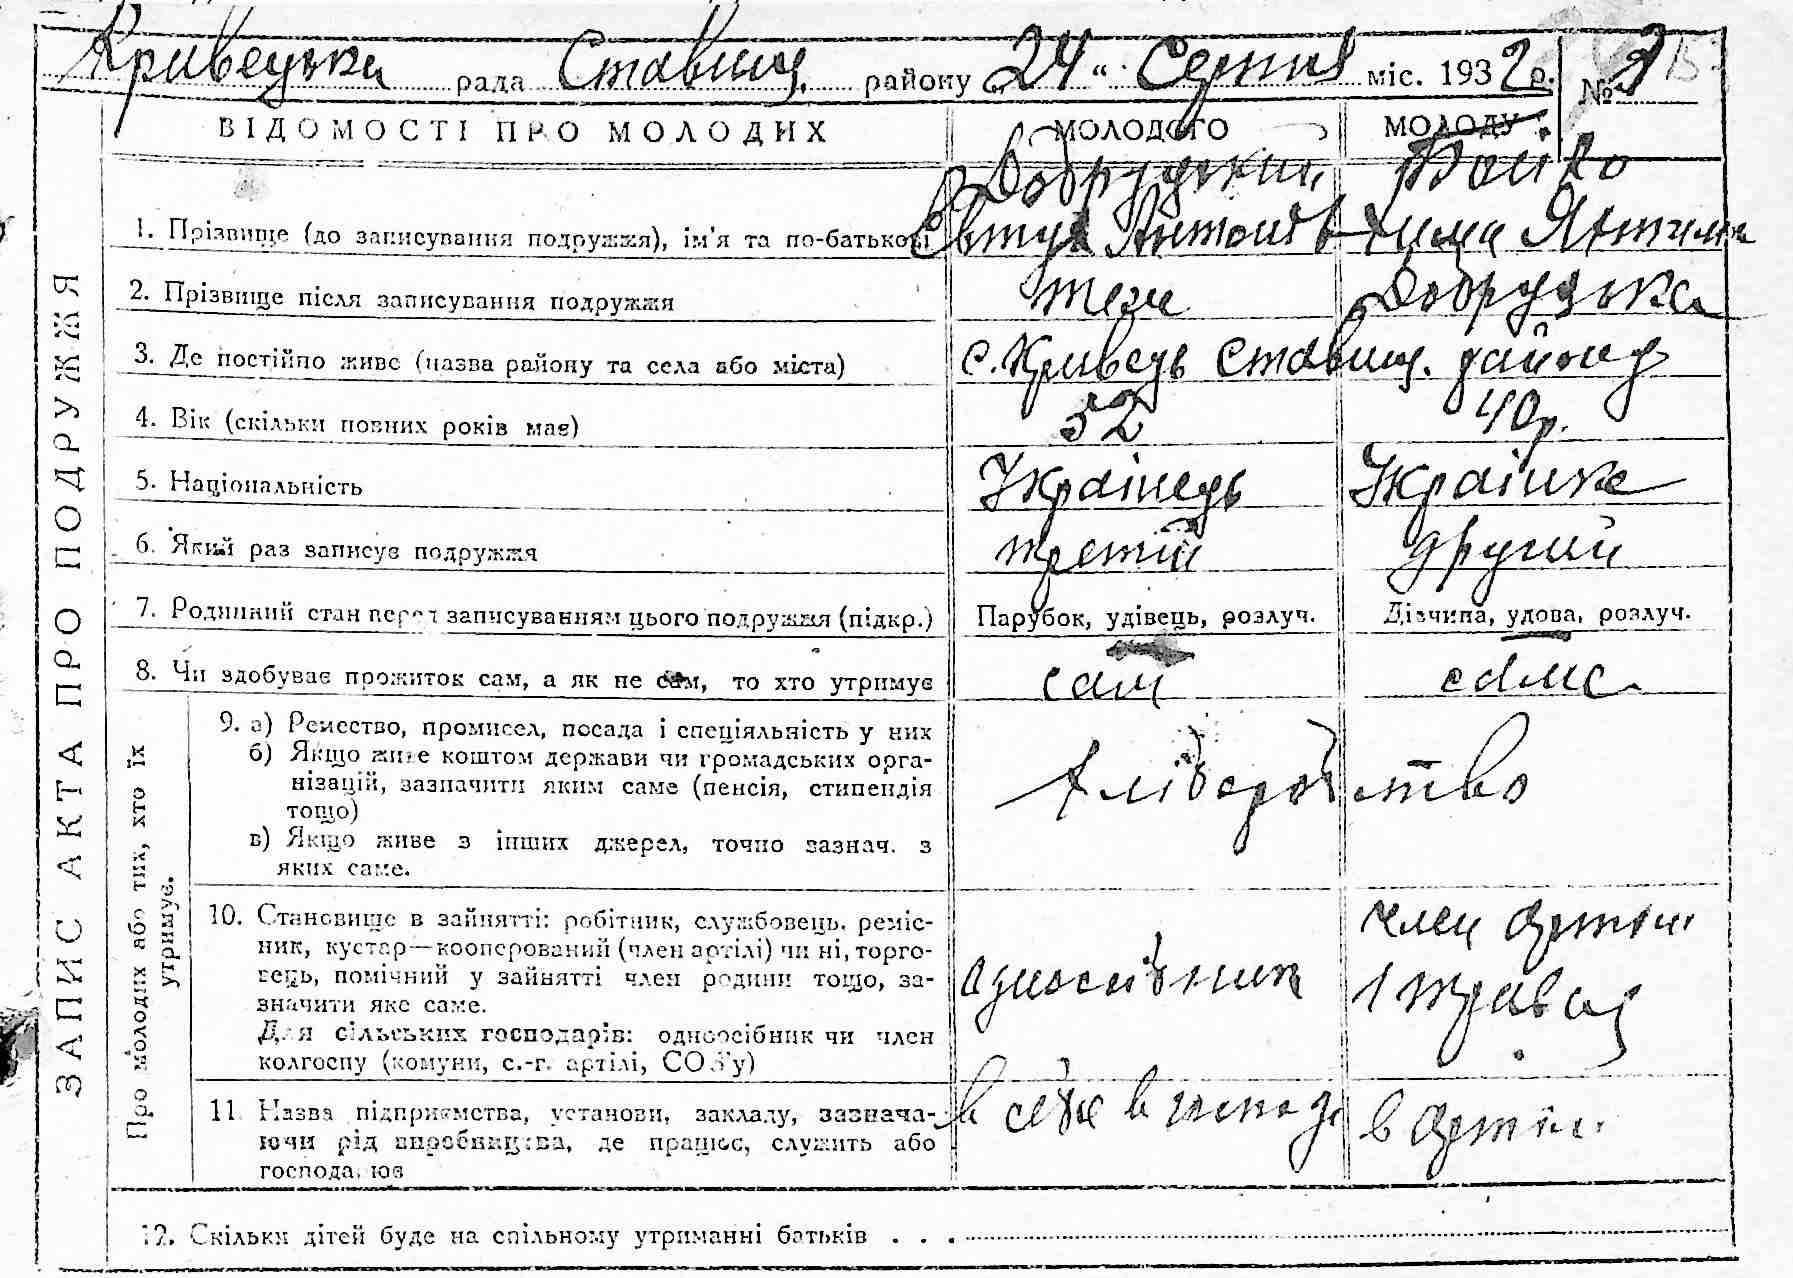 Кривецька рада Ставищ. району „24“ Серпня міс. 1932 р. № 2
ВІДОМОСТІ ПРО МОЛОДИХ МОЛОДОГО МОЛОДУ
Добруцький Бойко
1. Прізвище (до записування подружжя), ім'я та по-батькові Євтух Антонів Хима Янтим
2. Прізвище після записування подружжя теж Добруцька
3. Де постійно живе (назва району та села або міста) с. Кривець Ставищ. району
4. Вік (скільки повних років має) 52 40 р.
5. Національність Українець Українка
6. Який раз записує подружжя третій другий
7. Родинний стан перед записуванням цього подружжя (підкр.) Парубок, удівець, розлуч. Дівчина, удова, розлуч.
8. Чи здобуває прожиток сам, а як не сам, то хто утримує сам сама
ЗАПИС АКТА ПРО ПОДРУЖЖЯ
Про молодих або тих, хто їх
утримує.
9. а) Ремество, промисел, посада і спеціяльність у них
б) Якщо живе коштом держави чи громадських орга-
нізацій, зазначити яким саме (пенсія, стипендія
тощо)
в) Якщо живе з інших джерел, точно зазнач. з
яких саме.
хліборобство
10. Становище в зайнятті: робітник, службовець, реміс-
ник, кустар—кооперований (член артілі) чи ні, торго-
вець, помічний у зайнятті член родини тощо, за-
значити яке саме.
Для сільських господарів: одноосібник чи член
колгоспу (комуни, с.-г. артілі, СОЗ'у)
одноосібник
член артілі
1 травня
11. Назва підприємства, установи, закладу, зазнача-
ючи рід виробництва, де працює, служить або
господарює
в себе в господ.
в артілі
12. Скільки дітей буде на спільному утриманні батьків . . .